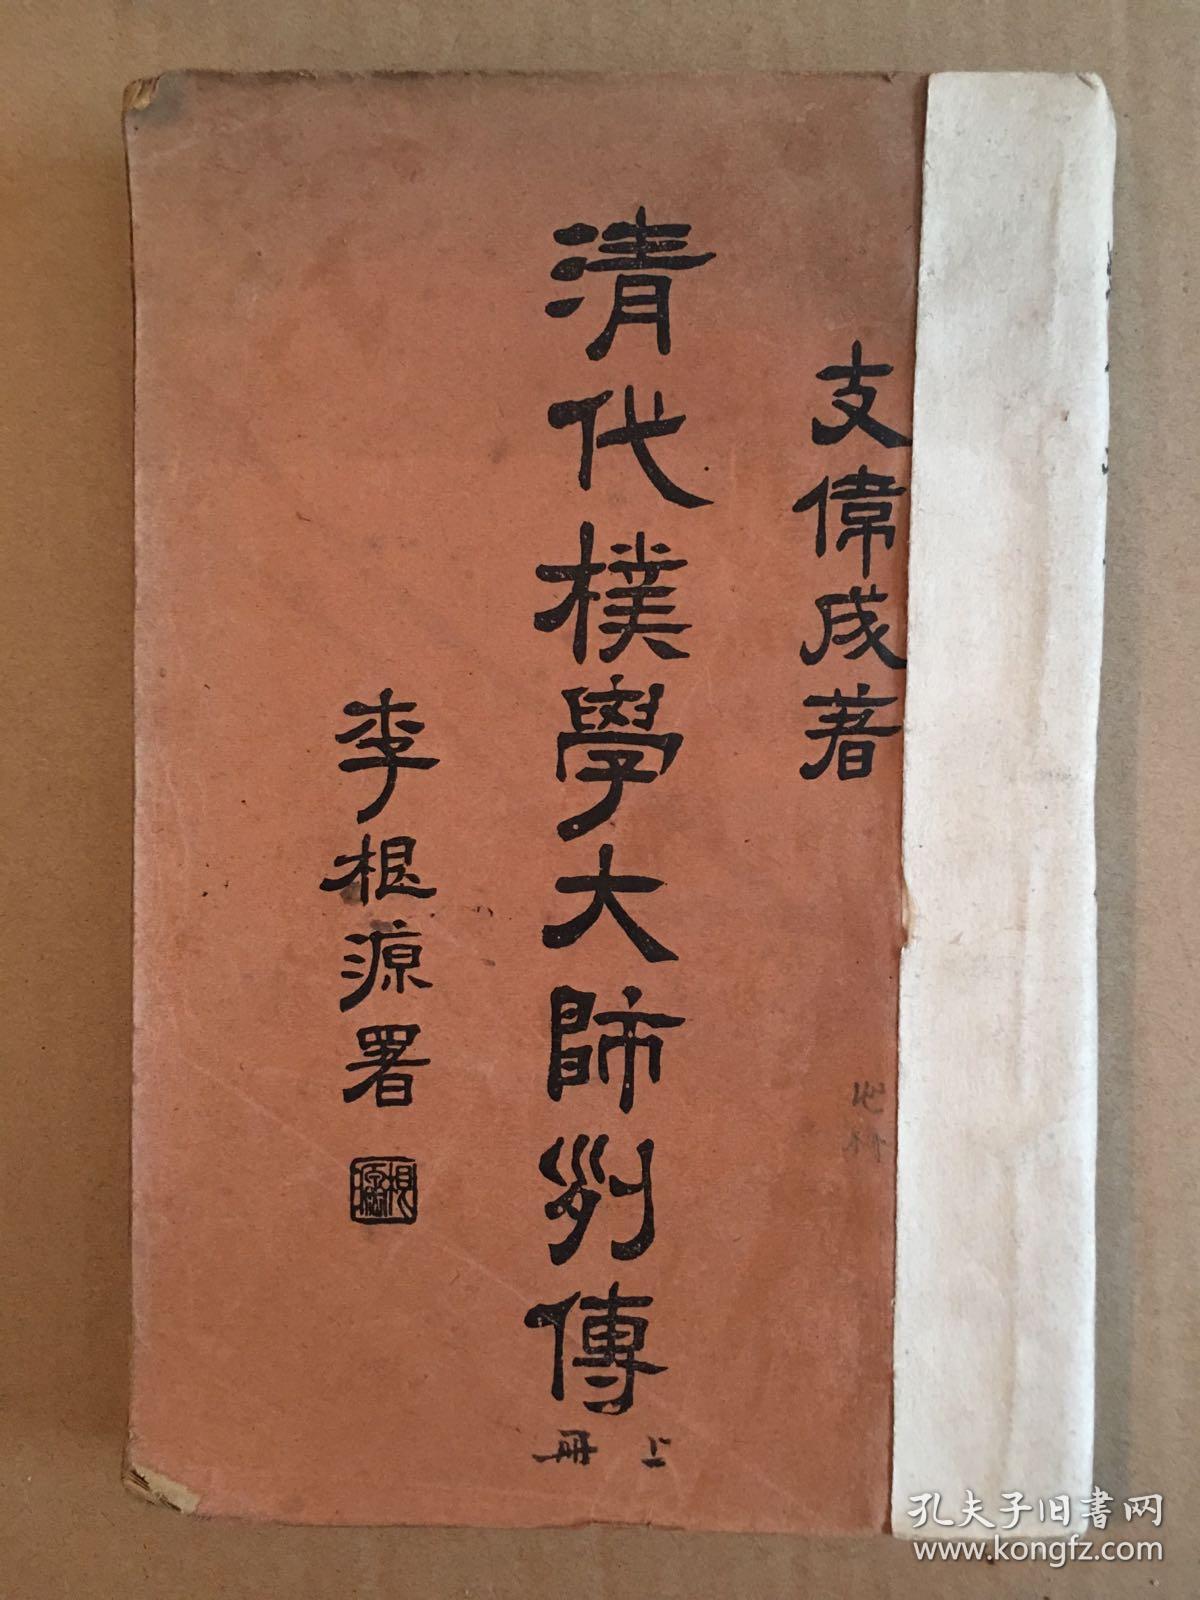 支偉成著
清代樸學大師列傳
上冊
李根源署
根源
孔夫子旧书网
www.kongfz.com